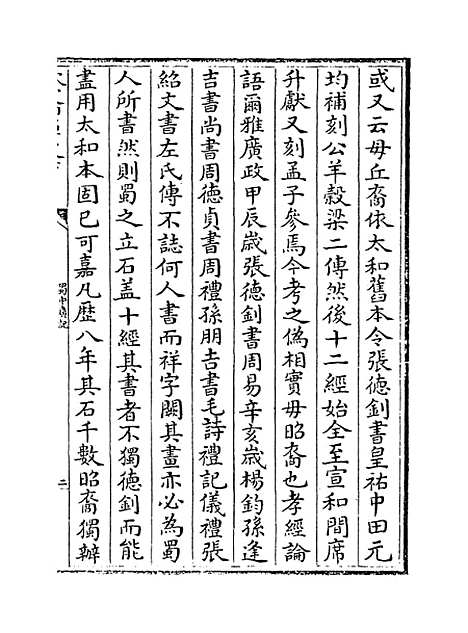 或又云毋丘裔依太和舊本令張德釗書皇祐中田元
均補刻公羊穀梁二傳然後十二經始全至宣和間席
升獻又刻孟子參焉今考之偽相實毋昭裔也孝經論
語爾雅廣政甲辰歲張德釗書周易辛亥歲楊鈞孫逢
吉書尚書周德貞書周禮孫朋吉書毛詩禮記儀禮張
紹文書左氏傳不誌何人書而祥字闕其畫亦必為蜀
人所書然則蜀之立石盖十經其書者不獨德釗而能
盡用太和本固已可嘉凡歷八年其石千數昭裔獨辦
蜀中廣記
二